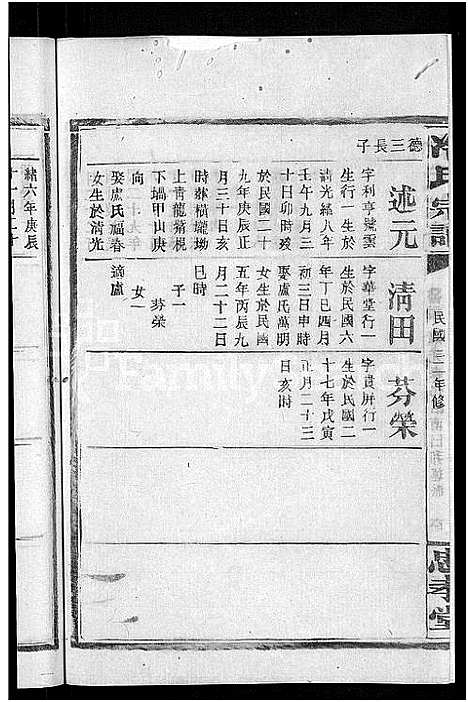 民國三十一年修
忠孝堂
德三長子
述元
字利亨號雲
生行一生於
清光緒八年
壬午九月三
十日卯時歿
於民國二十
九年庚辰正
月三十日亥
時葬橫壠坳
上靑龍嘴梘
下塥甲山庚
向
娶盧氏福春
女生於淸光
緒六年庚辰
淸田
字華堂行一
生於民國六
年丁巳四月
初三日申時
娶盧氏萬明
女生於民國
五年丙辰九
月二十二日
巳時
子一
芬榮
女一
適盧
芬榮
字貴屏行一
生於民國二
十七年戊寅
正月二十三
日亥時